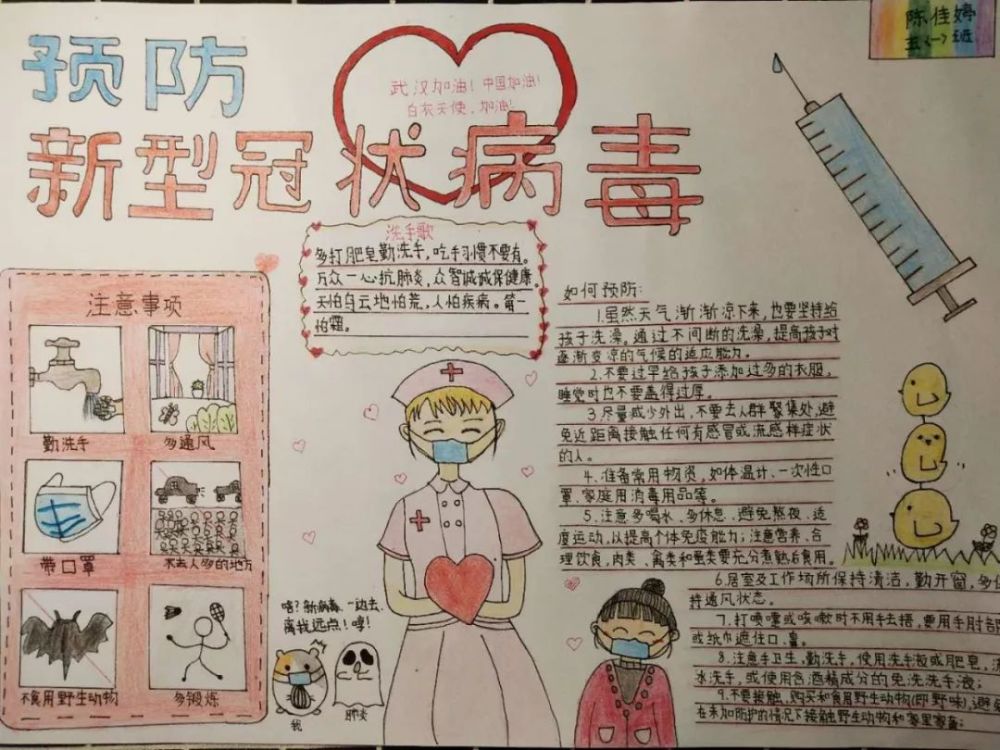 陈佳婷
五〈一〉班
预防
武汉加油！中国加油！
白衣天使，加油！
新型冠状病毒
洗手歌
多打肥皂勤洗手，吃手习惯不要有。
万众一心抗肺炎，众智诚诚保健康。
天怕乌云地怕荒，人怕疾病。第一
怕霜。
注意事项
勤洗手
多通风
带口罩
不去人多的地方
不食用野生动物
多锻炼
新病毒，一边去，
离我远点！哼！
我
肺炎
如何预防：
1.虽然天气渐渐凉下来，也要坚持给
孩子洗澡，通过不间断的洗澡，提高孩子对
逐渐变凉的气候的适应能力。
2.不要过早给孩子添加过多的衣服，
睡觉时也不要盖得过厚。
3.尽量减少外出，不要去人群聚集处，避
免近距离接触任何有感冒或流感样症状
的人。
4.准备常用物资，如体温计、一次性口
罩、家庭用消毒用品等。
5.注意多喝水、多休息、避免熬夜、适
度运动，以提高个体免疫能力；注意营养、合
理饮食，肉类、禽类和蛋类要充分煮熟后食用。
6.居室及工作场所保持清洁，勤开窗，多
持通风状态。
7.打喷嚏或咳嗽时不用手去捂，要用手肘部
或纸巾遮住口、鼻。
8.注意手卫生，勤洗手，使用洗手液或肥皂，
水洗手，或使用含酒精成分的免洗洗手液；
9.不要接触、购买和食用野生动物（即野味），避
在未加防护的情况下接触野生动物和家里家畜；